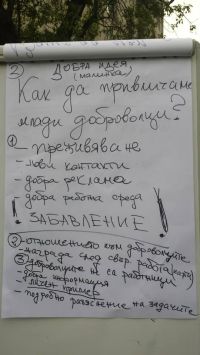 2) ДОБРА ИДЕЯ
(малинка)
Как да привличаме
млади доброволци?
1 - преживяване
- нови контакти
- добра реклама
- добра работна среда
! ЗАБАВЛЕНИЕ !
2 - отношението към доброволците
- награда след свър. работа
3 - доброволците не са работници
- добра информация
- личен пример
- подробно разяснение на задачите